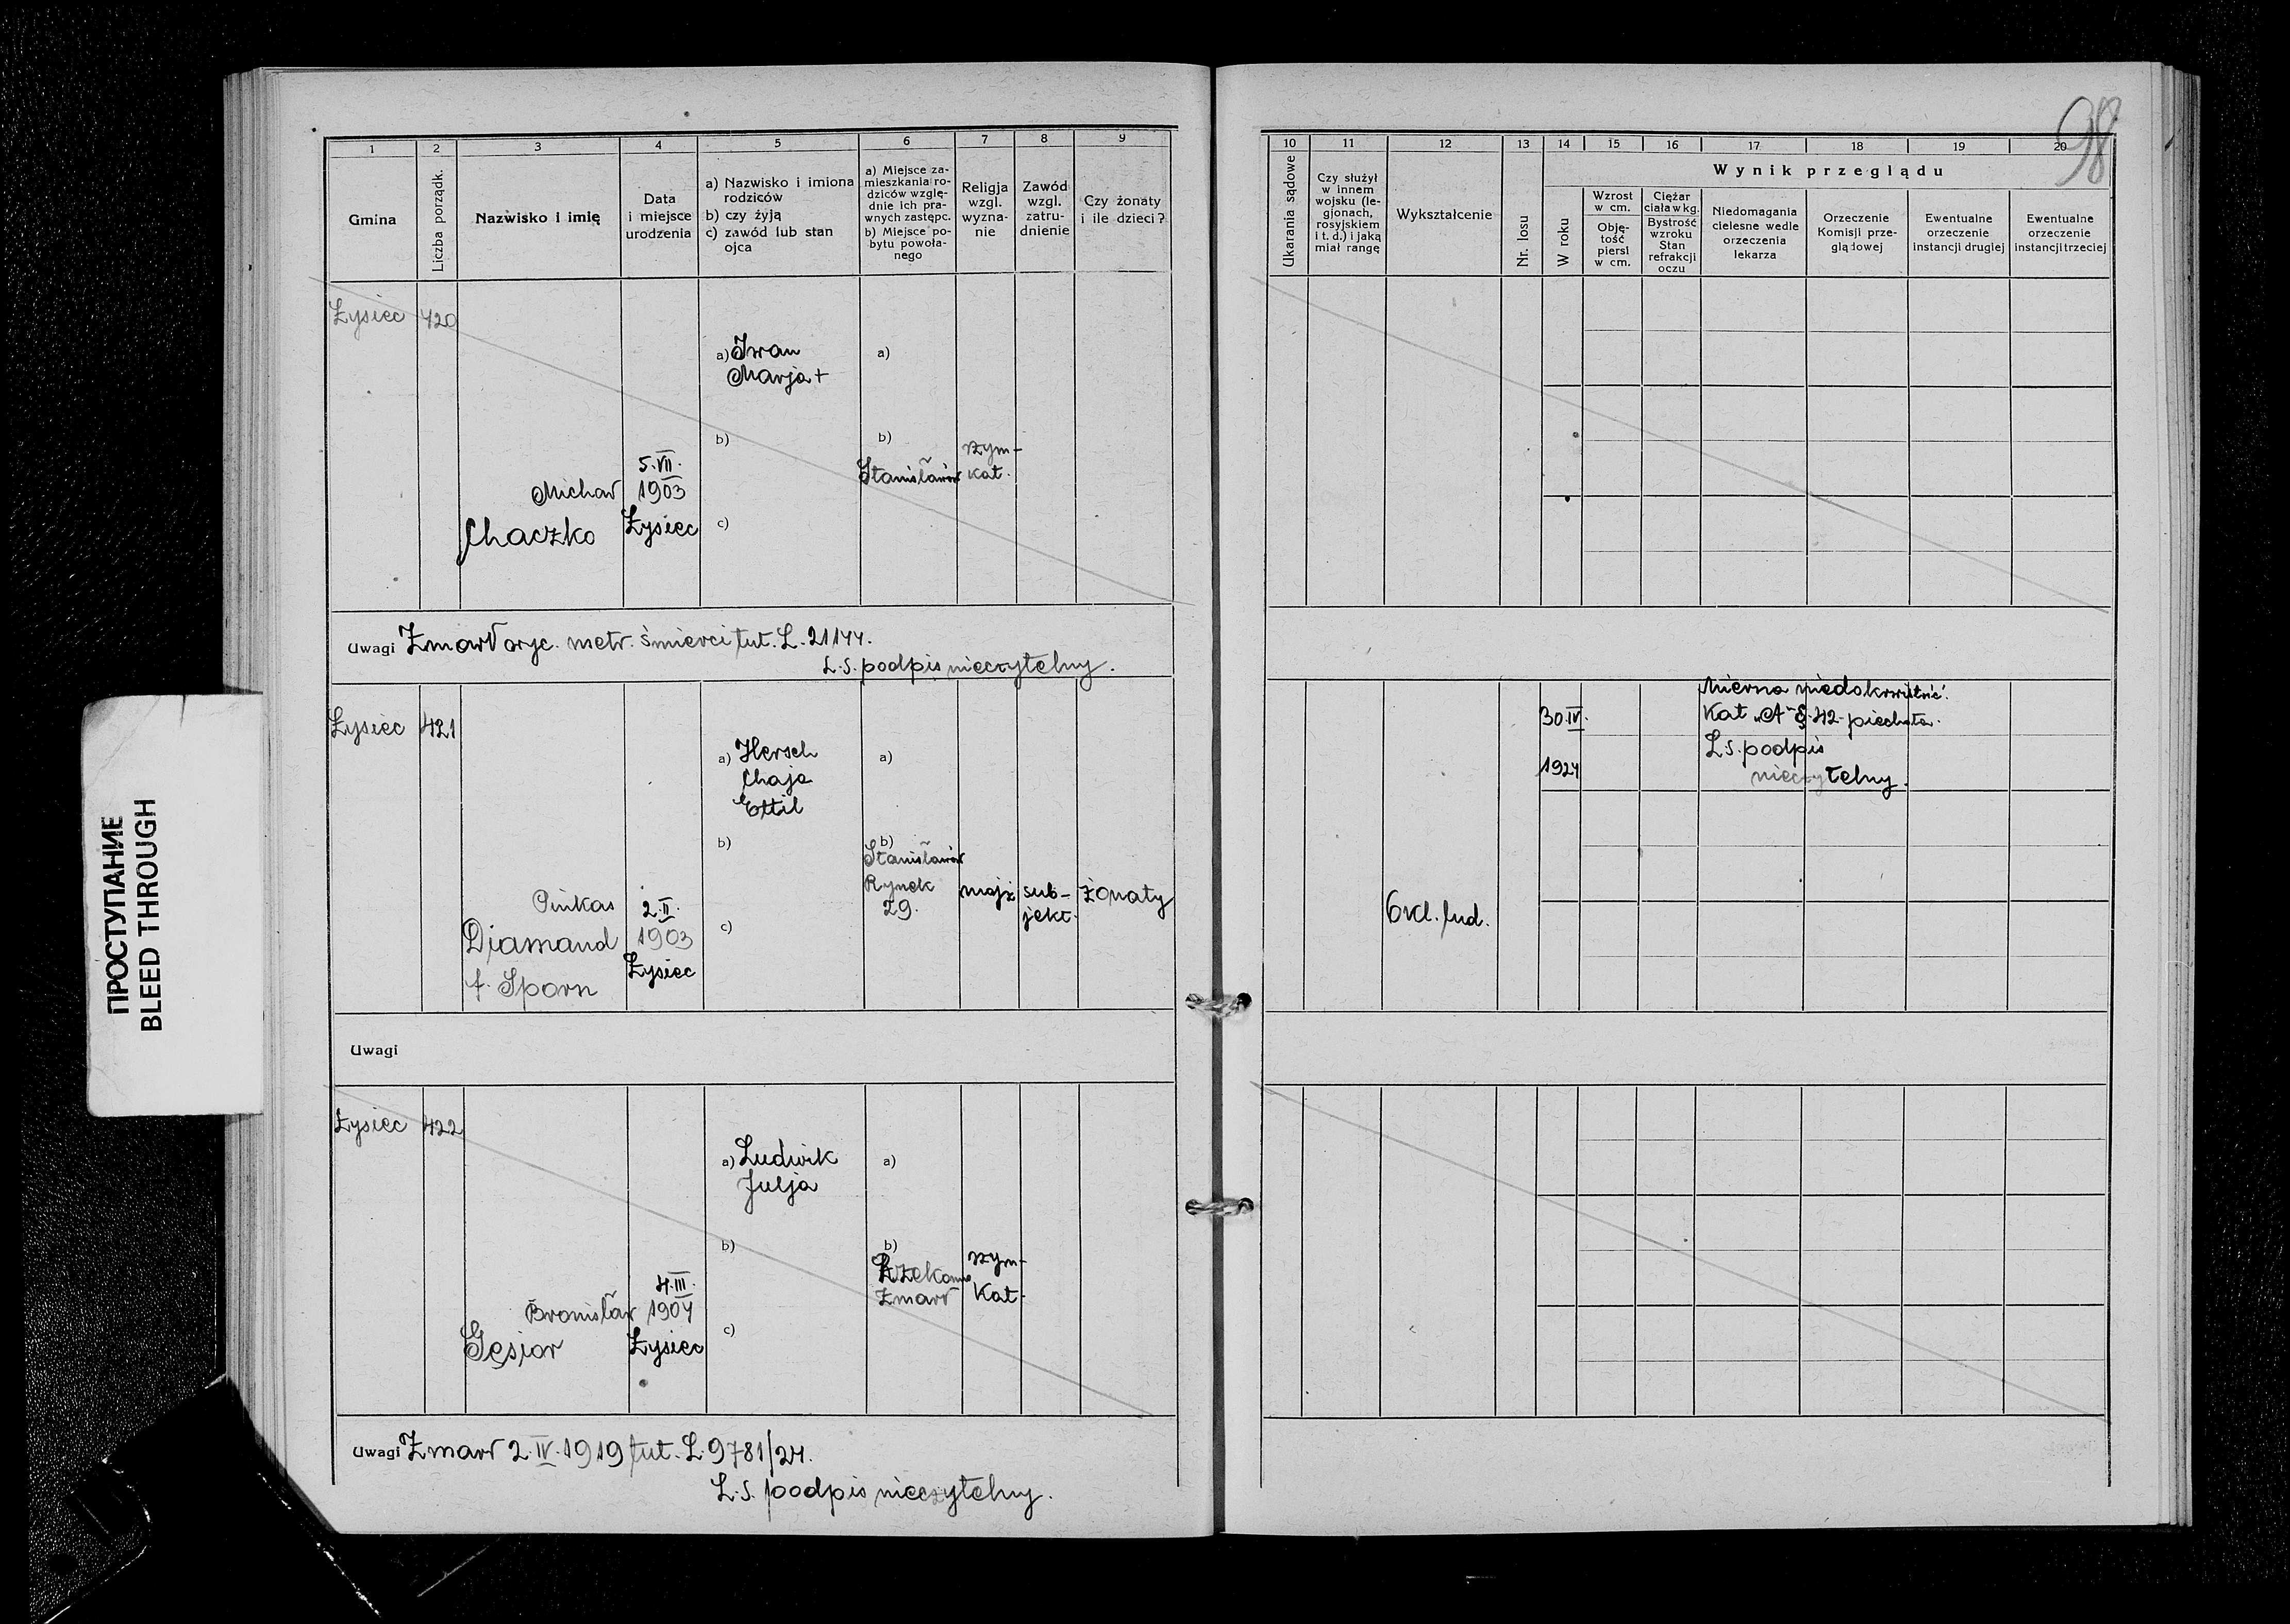 98
1 2 3 4 5 6 7 8 9
Gmina
Liczba porządk.
Nazwisko i imię
Data
i miejsce
urodzenia
a) Nazwisko i imiona
rodziców
b) czy żyją
c) zawód lub stan
ojca
a) Miejsce za-
mieszkania ro-
dziców wzglę-
dnie ich pra-
wnych zastępc.
b) Miejsce po-
bytu powoła-
nego
Religja
wzgl.
wyzna-
nie
Zawód
wzgl.
zatru-
dnienie
Czy żonaty
i ile dzieci?
10 11 12 13 14 15 16 17 18 19 20
Ukarania sądowe
Czy służył
w innem
wojsku (le-
gjonach,
rosyjskiem
i t. d.) i jaką
miał rangę
Wykształcenie
Nr. losu
Wynik przeglądu
W roku
Wzrost
w cm.
Obję-
tość
piersi
w cm.
Ciężar
ciała w kg.
Bystrość
wzroku
Stan
refrakcji
oczu
Niedomagania
cielesne wedle
orzeczenia
lekarza
Orzeczenie
Komisji prze-
glądowej
Ewentualne
orzeczenie
instancji drugiej
Ewentualne
orzeczenie
instancji trzeciej
Łysiec 420
Michał
Chaczko
5.VII.
1903
Łysiec
a) Iwan
Marja +
b)
c)
a)
b)
Stanisławów
rzym-
kat.
Uwagi Zmarł oryc. metr. śmierci tut. L. 21144.
L.S. podpis nieczytelny.
Łysiec 421
Pinkas
Diamand
f. Sporn
2.II.
1903
Łysiec
a) Hersch
Chaja
Ettil
b)
c)
a)
b)
Stanisławów
Rynek
29.
mojż
sub-
jekt.
żonaty
6 kl. lud.
30.IV.
1924
Mierna niedokrwistość.
Kat „A" §.42 piechota.
L.S. podpis
nieczytelny.
Uwagi
Łysiec 422
Bronisław
Gęsior
4.III.
1904
Łysiec
a) Ludwik
Julja
b)
c)
a)
b)
Rzekomo
zmarł
rzym-
Kat.
Uwagi Zmarł 2.IV.1919 tut. L. 9781/24.
L.S. podpis nieczytelny.
ПРОСТУПАНИЕ
BLEED THROUGH